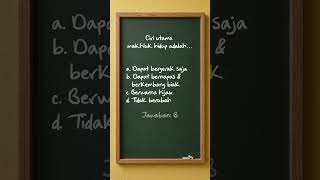 Ciri utama
makhluk hidup adalah...
a. Dapat bergerak saja
b. Dapat bernapas &
berkembang biak
c. Berwarna hijau
d. Tidak berubah
Jawaban: B